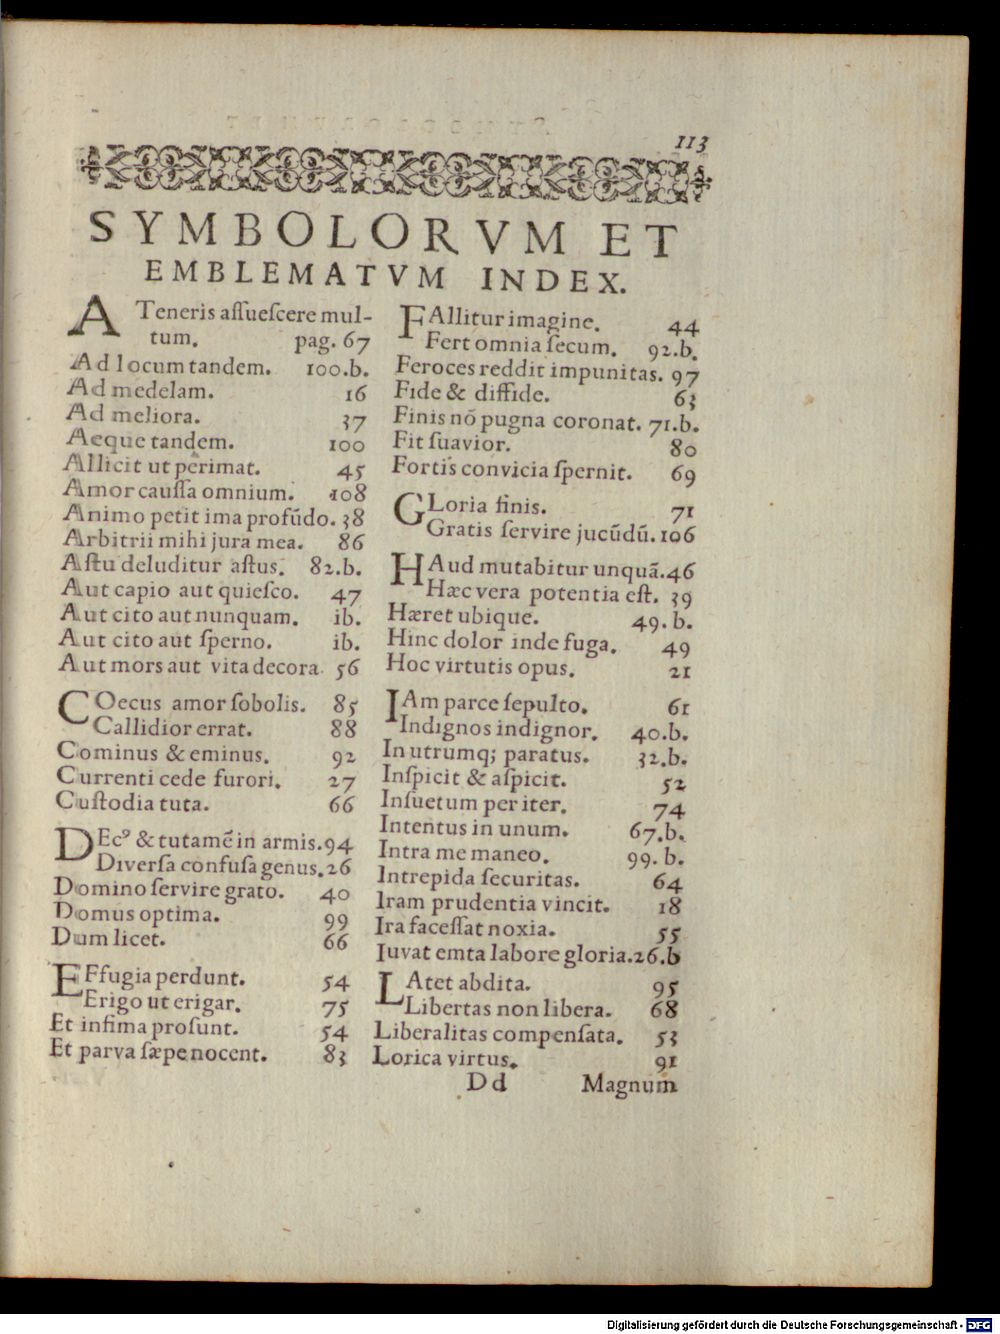 113
SYMBOLORVM ET
EMBLEMATVM INDEX.
ATeneris aſſueſcere mul-
tum. pag. 67
Ad locum tandem. 100.b.
Ad medelam. 16
Ad meliora. 37
Aeque tandem. 100
Allicit ut perimat. 45
Amor cauſſa omnium. 108
Animo petit ima profūdo. 38
Arbitrii mihi jura mea. 86
Aſtu deluditur aſtus. 82.b.
Aut capio aut quieſco. 47
Aut cito aut nunquam. ib.
Aut cito aut ſperno. ib.
Aut mors aut vita decora 56
COecus amor ſobolis. 85
Callidior errat. 88
Cominus & eminus. 92
Currenti cede furori. 27
Cuſtodia tuta. 66
DEcꝰ & tutamē in armis. 94
Diverſa confuſa genus. 26
Domino ſervire grato. 40
Domus optima. 99
Dum licet. 66
EFfugia perdunt. 54
Erigo ut erigar. 75
Et infima proſunt. 54
Et parva ſæpe nocent. 83
FAllitur imagine. 44
Fert omnia ſecum. 92.b.
Feroces reddit impunitas. 97
Fide & diffide. 63
Finis nō pugna coronat. 71.b.
Fit ſuavior. 80
Fortis convicia ſpernit. 69
GLoria finis. 71
Gratis ſervire jucūdū. 106
HAud mutabitur unquā. 46
Hæc vera potentia eſt. 39
Hæret ubique. 49.b.
Hinc dolor inde fuga. 49
Hoc virtutis opus. 21
IAm parce ſepulto. 61
Indignos indignor. 40.b.
In utrumq; paratus. 32.b.
Inſpicit & aſpicit. 52
Inſuetum per iter. 74
Intentus in unum. 67.b.
Intra me maneo. 99.b.
Intrepida ſecuritas. 64
Iram prudentia vincit. 18
Ira faceſſat noxia. 55
Iuvat emta labore gloria. 26.b
LAtet abdita. 95
Libertas non libera. 68
Liberalitas compenſata. 53
Lorica virtus. 91
Dd Magnum
Digitalisierung gefördert durch die Deutsche Forschungsgemeinschaft - DFG